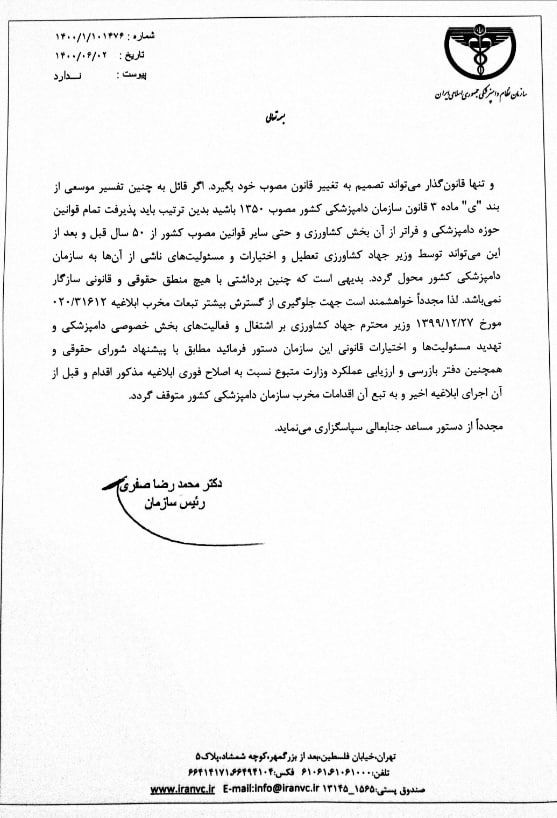 شماره : ۱۴۰۰/۱/۱۰۱۴۷۶
تاریخ : ۱۴۰۰/۰۶/۰۲
پیوست : ندارد
سازمان نظام دامپزشکی جمهوری اسلامی ایران
بسمه تعالی
و تنها قانون‌گذار می‌تواند تصمیم به تغییر قانون مصوب خود بگیرد. اگر قائل به چنین تفسیر موسعی از
بند "ی" ماده ۳ قانون سازمان دامپزشکی کشور مصوب ۱۳۵۰ باشید بدین ترتیب باید پذیرفت تمام قوانین
حوزه دامپزشکی و فراتر از آن بخش کشاورزی و حتی سایر قوانین مصوب کشور از ۵۰ سال قبل و بعد از
این می‌تواند توسط وزیر جهاد کشاورزی تعطیل و اختیارات و مسئولیت‌های ناشی از آن‌ها به سازمان
دامپزشکی کشور محول گردد. بدیهی است که چنین برداشتی با هیچ منطق حقوقی و قانونی سازگار
نمی‌باشد. لذا مجدداً خواهشمند است جهت جلوگیری از گسترش بیشتر تبعات مخرب ابلاغیه ۰۲۰/۳۱۶۱۲
مورخ ۱۳۹۹/۱۲/۲۷ وزیر محترم جهاد کشاورزی بر اشتغال و فعالیت‌های بخش خصوصی دامپزشکی و
تهدید مسئولیت‌ها و اختیارات قانونی این سازمان دستور فرمائید مطابق با پیشنهاد شورای حقوقی و
همچنین دفتر بازرسی و ارزیابی عملکرد وزارت متبوع نسبت به اصلاح فوری ابلاغیه مذکور اقدام و قبل از
آن اجرای ابلاغیه اخیر و به تبع آن اقدامات مخرب سازمان دامپزشکی کشور متوقف گردد.
مجدداً از دستور مساعد جنابعالی سپاسگزاری می‌نماید.
دکتر محمد رضا صفری
رئیس سازمان
تهران،خیابان فلسطین،بعد از بزرگمهر،کوچه شمشاد،پلاک۵
تلفن:۶۱۰۶۱،۶۱۰۶۱۰۰۰ فکس:۶۶۴۱۴۱۷۱،۶۶۴۹۴۱۰۴
صندوق پستی:۱۵۶۵_۱۳۱۴۵ E-mail:info@iranvc.ir www.iranvc.ir